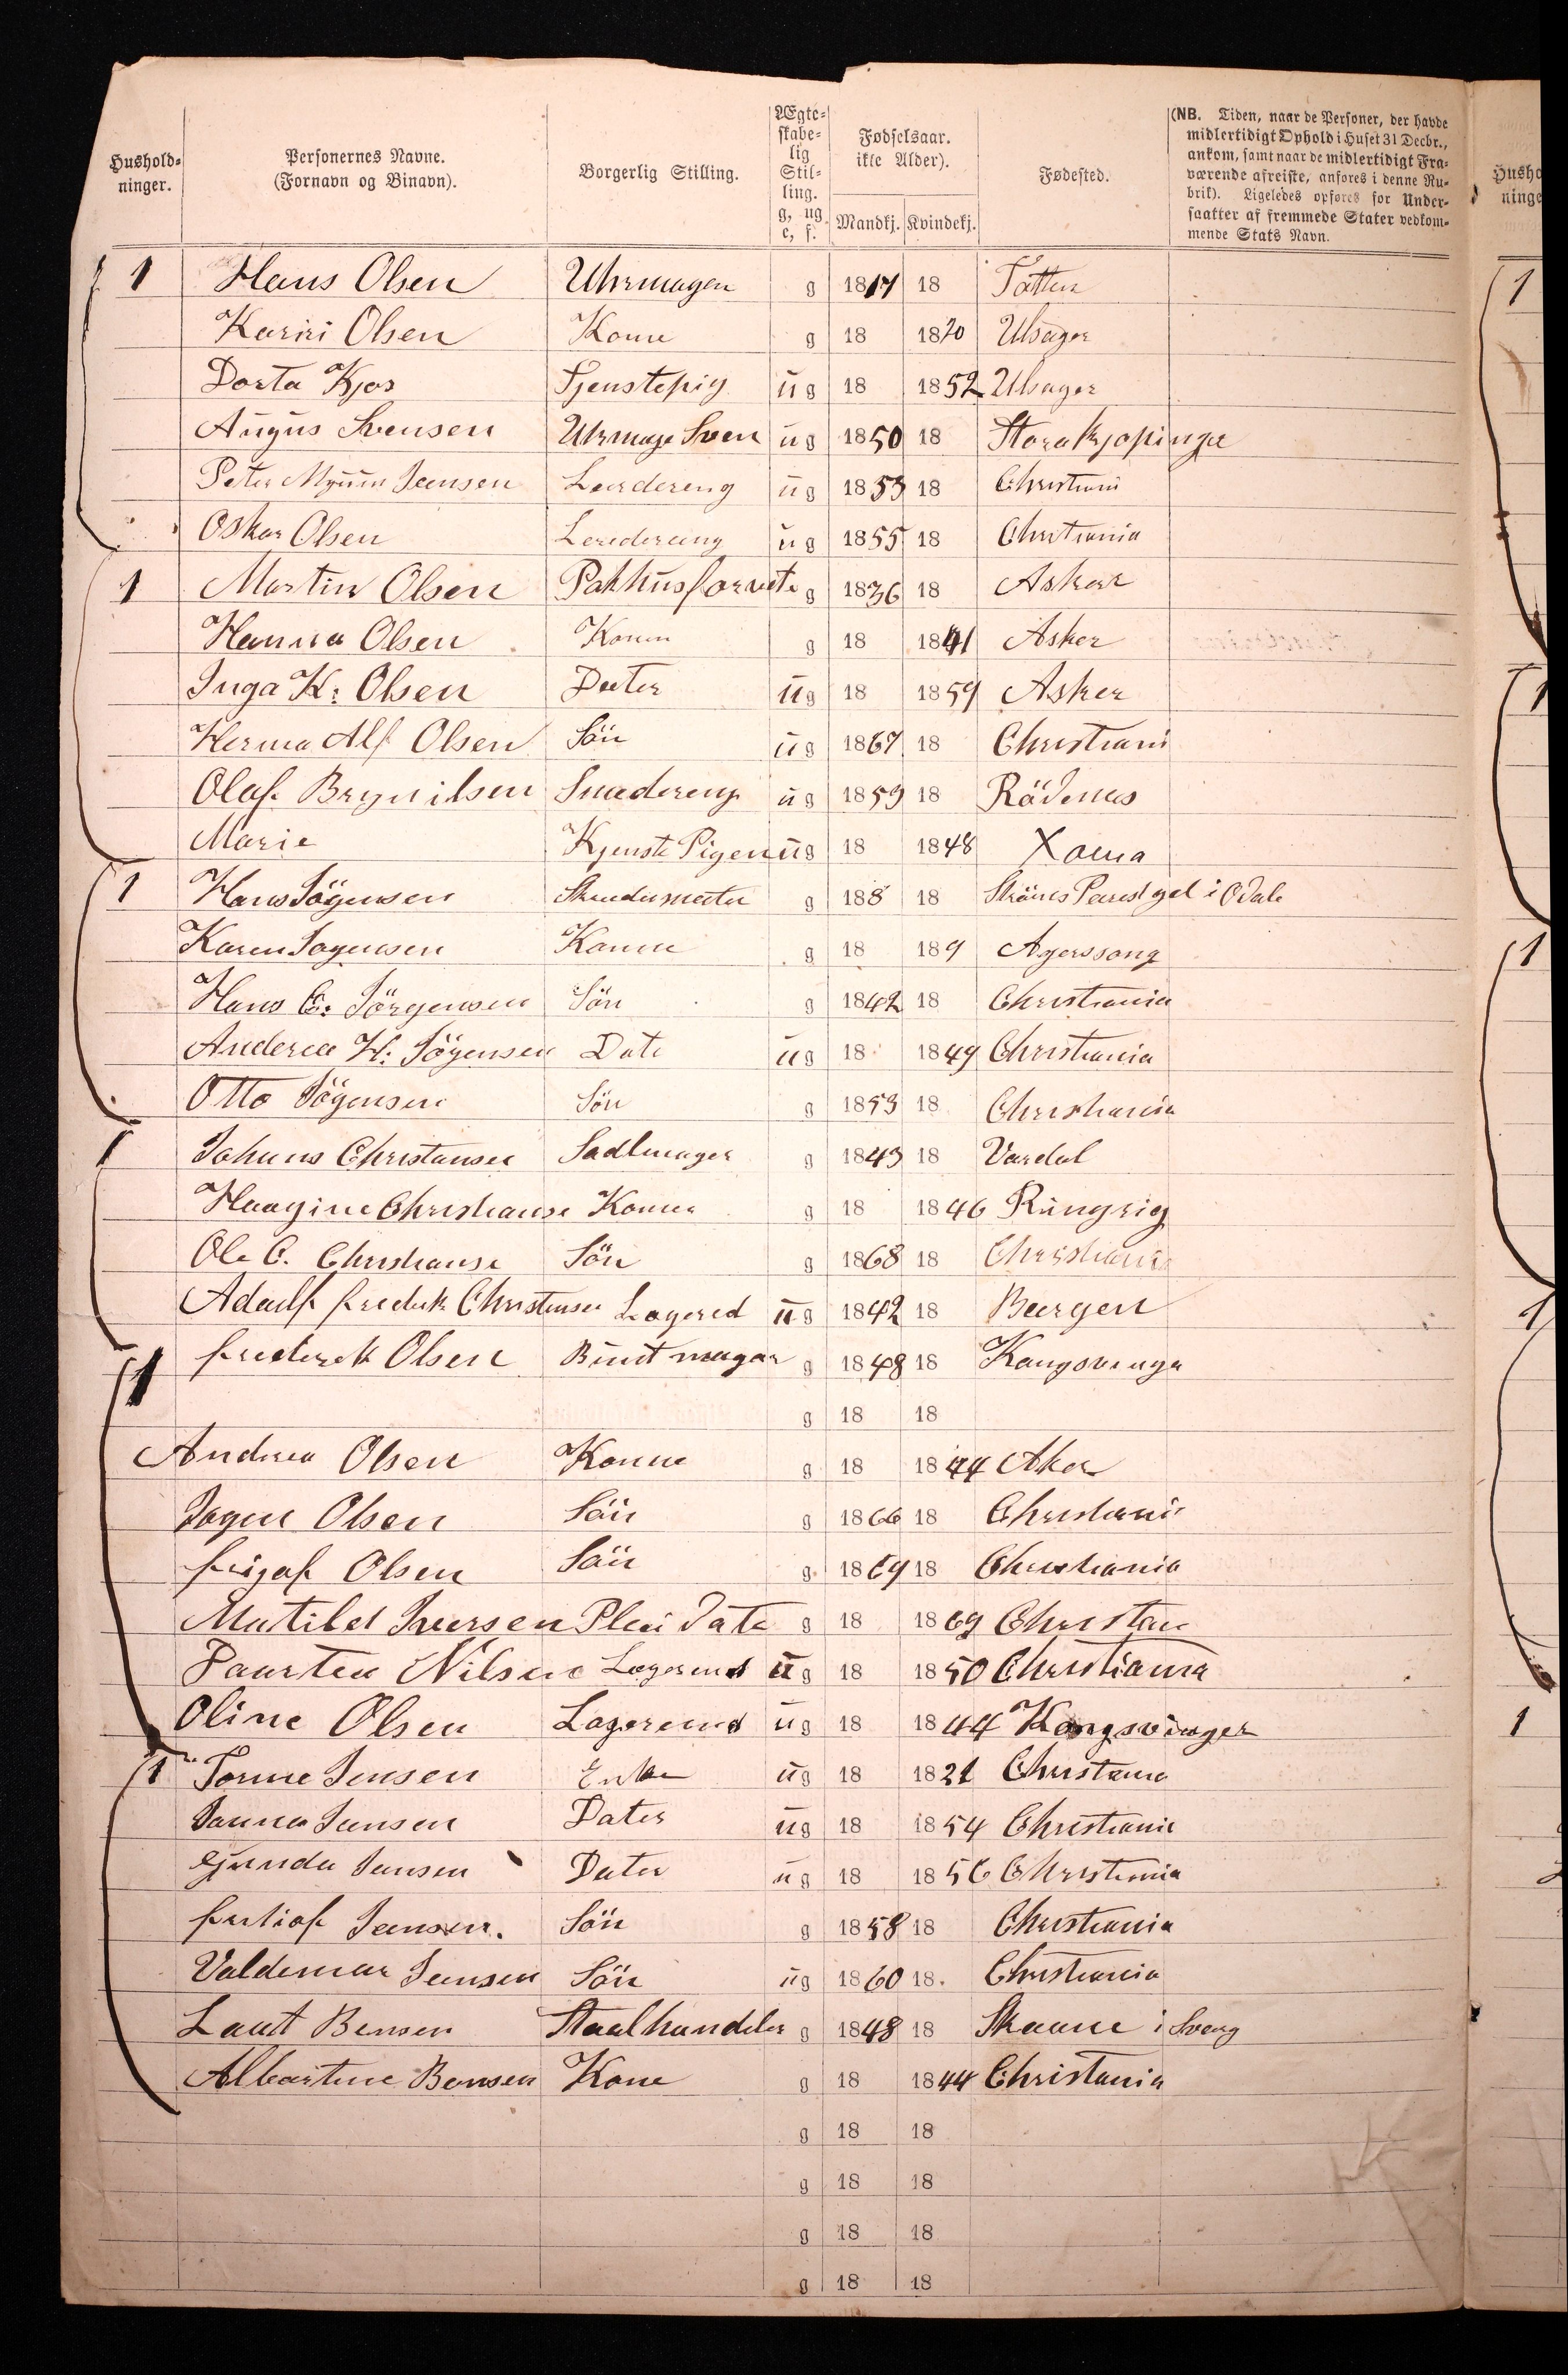 Hushold-
ninger.
Personernes Navne.
(Fornavn og Binavn).
Borgerlig Stilling.
Ægte-
skabe-
lig
Stil-
ling.
g, ug.
e, f.
Fødselsaar.
ikke Alder).
Mandkj. Kvindekj.
Fødested.
(NB. Tiden, naar de Personer, der havde
midlertidigt Ophold i Huset 31 Decbr.,
ankom, samt naar de midlertidigt Fra-
værende afreiste, anføres i denne Ru-
brik). Ligeledes opføres for Under-
saatter af fremmede Stater vedkom-
mende Stats Navn.
1 Hans Olsen Uhrmager g 1817 18 Tatten
Kariri Olsen Kone g 18 1820 Ulsager
Dorta Kjos Tjenstepig ug 18 1852 Ulsager
Augus Svensen Uhrmage Sven ug 1850 18 Storakjopinge
Peter Jensen Lærdereng ug 1853 18 Christiani
Oskar Olsen Leredereng ug 1855 18 Christiania
1 Martin Olsen Pakhusforvete g 1836 18 Asker
Hanna Olsen Konen g 18 1841 Asker
Inga K: Olsen Dater ug 18 1859 Asker
Herma Alf Olsen Sön ug 1867 18 Christiani
Olaf Brynilsen ug 1859 18 Rödenes
Marie Kjenste Pigen ug 18 1848
1 Hans Sögensen g 188 18 i Odale
Karen Sogensen Konen g 18 189
Hans C: Sörgensen Sön g 1842 18 Christiania
Anderea H: Sögensen Date ug 18 1849 Christiania
Otto Sögensen Sön g 1853 18 Christiania
1 Johans Christansen Sadlmager g 1843 18 Vardal
Haagine Christianse Konen g 18 1846 Ringrig
Ole C. Christianse Sön g 1868 18 Christiania
Adaulf fredrik Christensen Lagered ug 1842 18 Bærgen
1 frederek Olsen Buntmagar g 1848 18 Kongsvinge
g 18 18
Andrea Olsen Konne g 18 1844 Aker
Jogen Olsen Sön g 1866 18 Christiania
frigof Olsen Sön g 1869 18 Christiania
Matild Iversen Plei Date g 18 1869 Christan
Paursten Nilsen Logerend ug 18 1850 Christiania
Oline Olsen Logerend ug 18 1844 Kongsvinger
1 Tomine Jensen Enke ug 18 1821 Christania
Janna Jensen Dater ug 18 1854 Christiania
Gunda Jensen Dater ug 18 1856 Christiania
fritiof Jensen. Sön g 1858 18 Christiania
Valdemar Jensen Sön ug 1860 18. Christiania
Laust Bensen Staalhandeler g 1848 18 Skaane i Sverg
Albartine Bensen Kone g 18 1844 Christania
g 18 18
g 18 18
g 18 18
g 18 18
Hushold
ninge
1
1
1
1
1